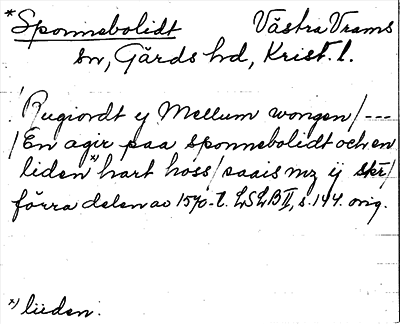 *Sponnebolidt Västra Vrams
sn, Gärds hd, Krist. l.
! Rugiordt ij Mellum wongen/---
/En agir paa sponnebolidt och en
liden*) hart hoss/saais mz ij skr/
förra delen av 1570-t. LSLB II, s. 144. orig.
*) lüden.